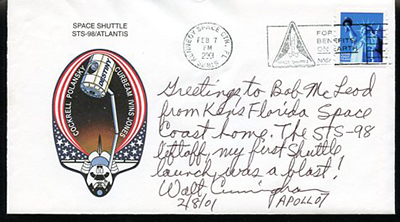 SPACE SHUTTLE
STS-98/ATLANTIS
COCKRELL POLANSKY CURBEAM IVINS JONES
DESTINY
FEB 7
PM
2001
FOR
BENEFITS
ON EARTH
Greetings to Bob McLeod
from Ken's Florida Space
Coast home. The STS-98
liftoff, my first Shuttle
launch, was a blast!
Walt Cunningham
2/8/01 APOLLO 7